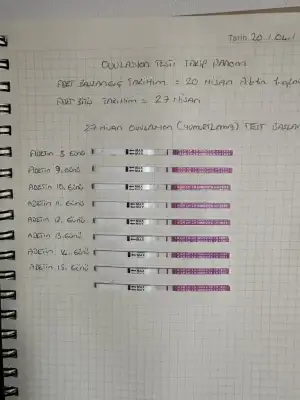 Tarih 20.1.04.1
OVULASYON TESTİ TAKİP
ADET BAŞLANGIÇ TARİHİM = 20 NİSAN
ADET BİTİŞ TARİHİM = 27 NİSAN
27 NİSAN OVULASYON (YUMURTLAMA) TEST
ADETİN 8. GÜNÜ
ADETİN 9. GÜNÜ
ADETİN 10. GÜNÜ
ADETİN 11. GÜNÜ
ADETİN 12. GÜNÜ
ADETİN 13. GÜNÜ
ADETİN 14. GÜNÜ
ADETİN 15. GÜNÜ